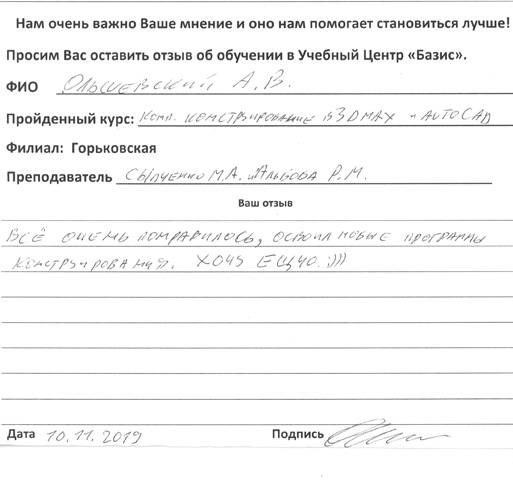 Нам очень важно Ваше мнение и оно нам помогает становиться лучше!
Просим Вас оставить отзыв об обучении в Учебный Центр «Базис».
ФИО Ольшевский А.В.
Пройденный курс: Комп. конструирование в 3DMAX и AUTOCAD
Филиал: Горьковская
Преподаватель Сыпченко М.А. и Альбова Р.М.
Ваш отзыв
ВСЁ ОЧЕНЬ ПОНРАВИЛОСЬ, ОСВОИЛ НОВЫЕ ПРОГРАММЫ
КОНСТРУИРОВАНИЯ. ХОЧУ ЕЩЧО :)))
Дата 10.11.2019 Подпись